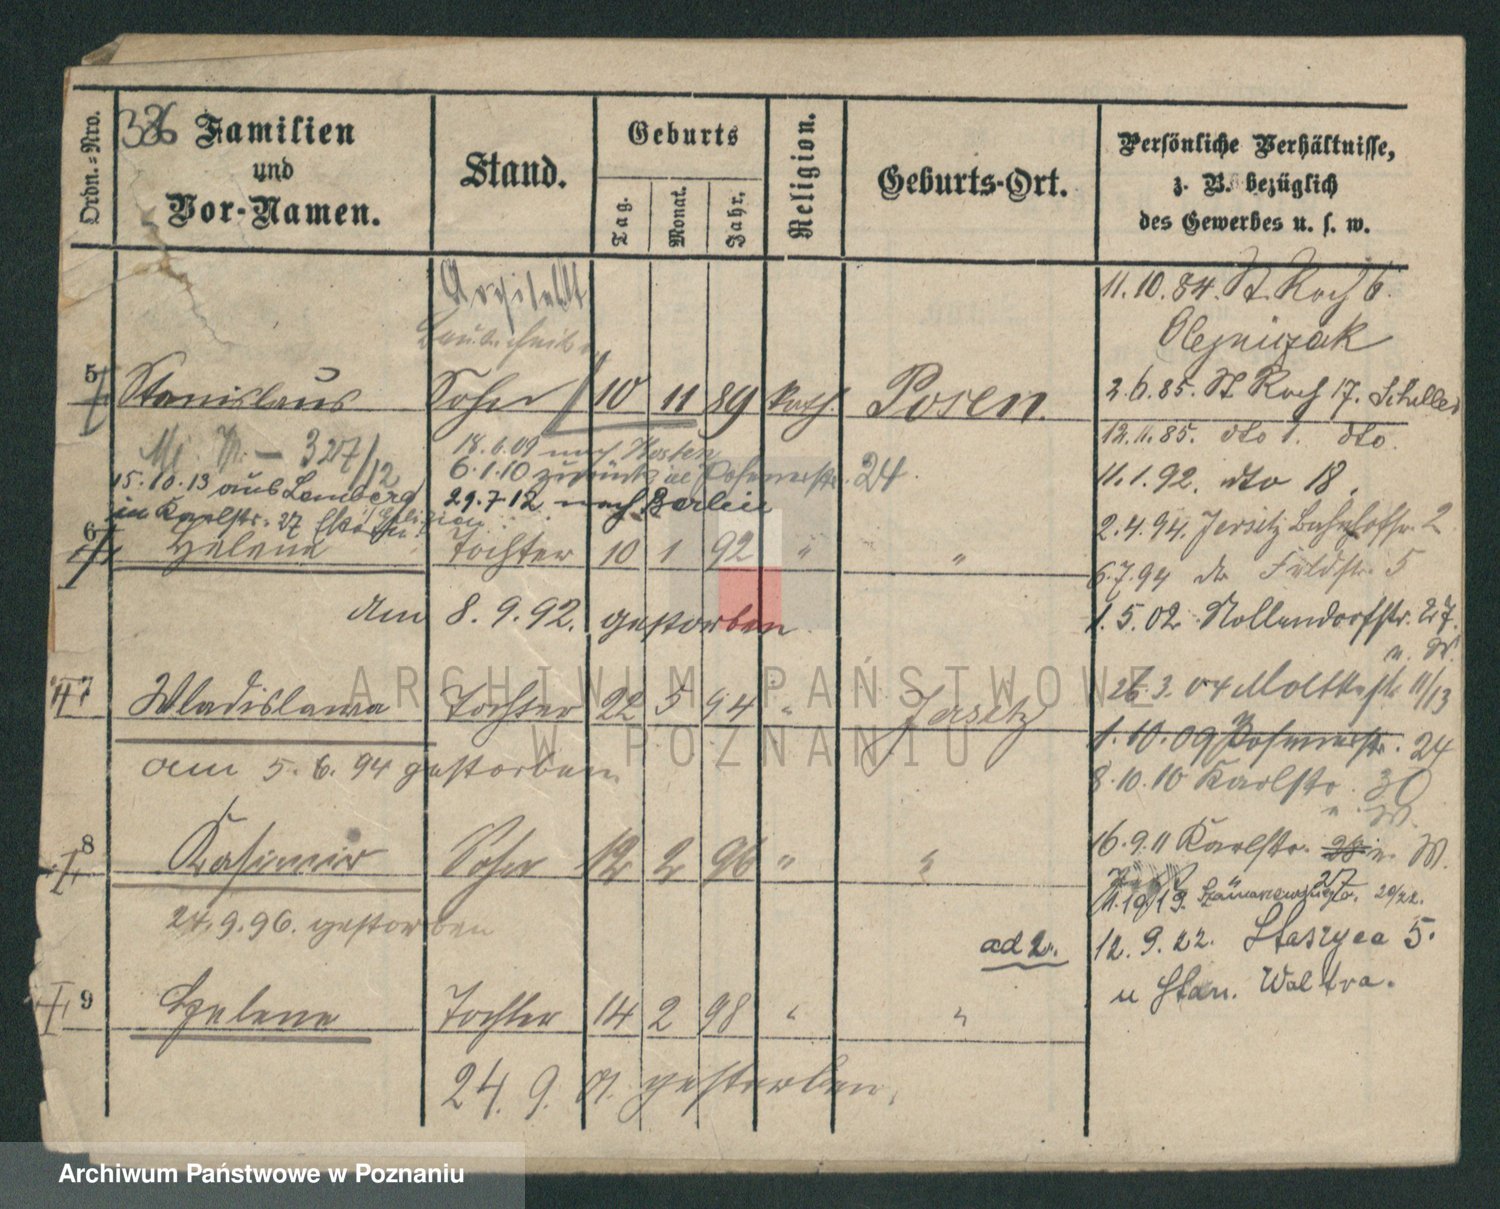 Ordn.=Nro.
336 Familien
und
Vor-Namen.
Stand.
Geburts
Tag.
Monat.
Jahr.
Religion.
Geburts-Ort.
Persönliche Verhältnisse,
z. B. bezüglich
des Gewerbes u. s. w.
Architekt
5 Stanislaus Sohn 10 11 89 kath. Posen.
327/12
18.6.09 nach
6.1.10 zurück Posenerstr. 24
15.10.13 aus Lemberg 29.7.12 nach Berlin
in Karlstr. 27
6 Helene Tochter 10 1 92 " "
am 8.9.92. gestorben
7 Wladislawa Tochter 22 5 94 " Jersitz
am 5.6.94 gestorben
8 Kasimir Sohn 12 2 96 " "
24.9.96. gestorben
9 Helene Tochter 14 2 98 " "
24.9.01. gestorben.
11.10.84. St. Roch 6.
Olejniczak
2.6.85. St Roch 17. Schiller
12.11.85. dto 1. dto.
11.1.92. dto 18.
2.4.94. Jersitz Bahnhofstr. 2
6.7.94 do Feldstr. 5
1.5.02. Nollendorfstr. 27.
u. W.
26.3.04 Moltkestr. 11/13
1.10.09 Posenerstr. 24
8.10.10 Karlstr. 30
u. W.
16.9.11 Karlstr. 28 u. W.
27
20/22.
ad 2. 12.9.22. Staszyca 5.
u Stan. Waltra.
ARCHIWUM PAŃSTWOWE
W POZNANIU
Archiwum Państwowe w Poznaniu